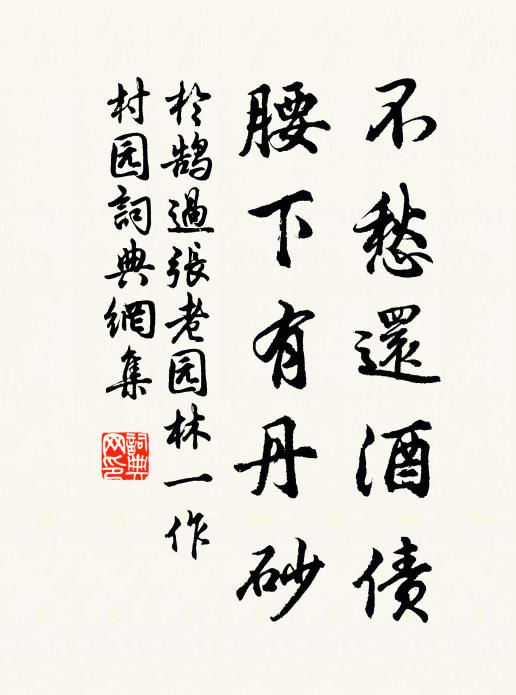 不愁還酒債
腰下有丹砂
於鵠過張老园林一作
村园詞典網集
詞典网印